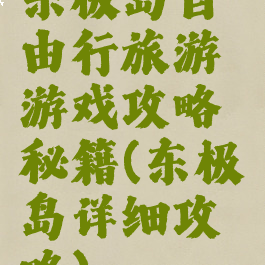 东极岛自
由行旅游
游戏攻略
秘籍(东极
岛详细攻
略)